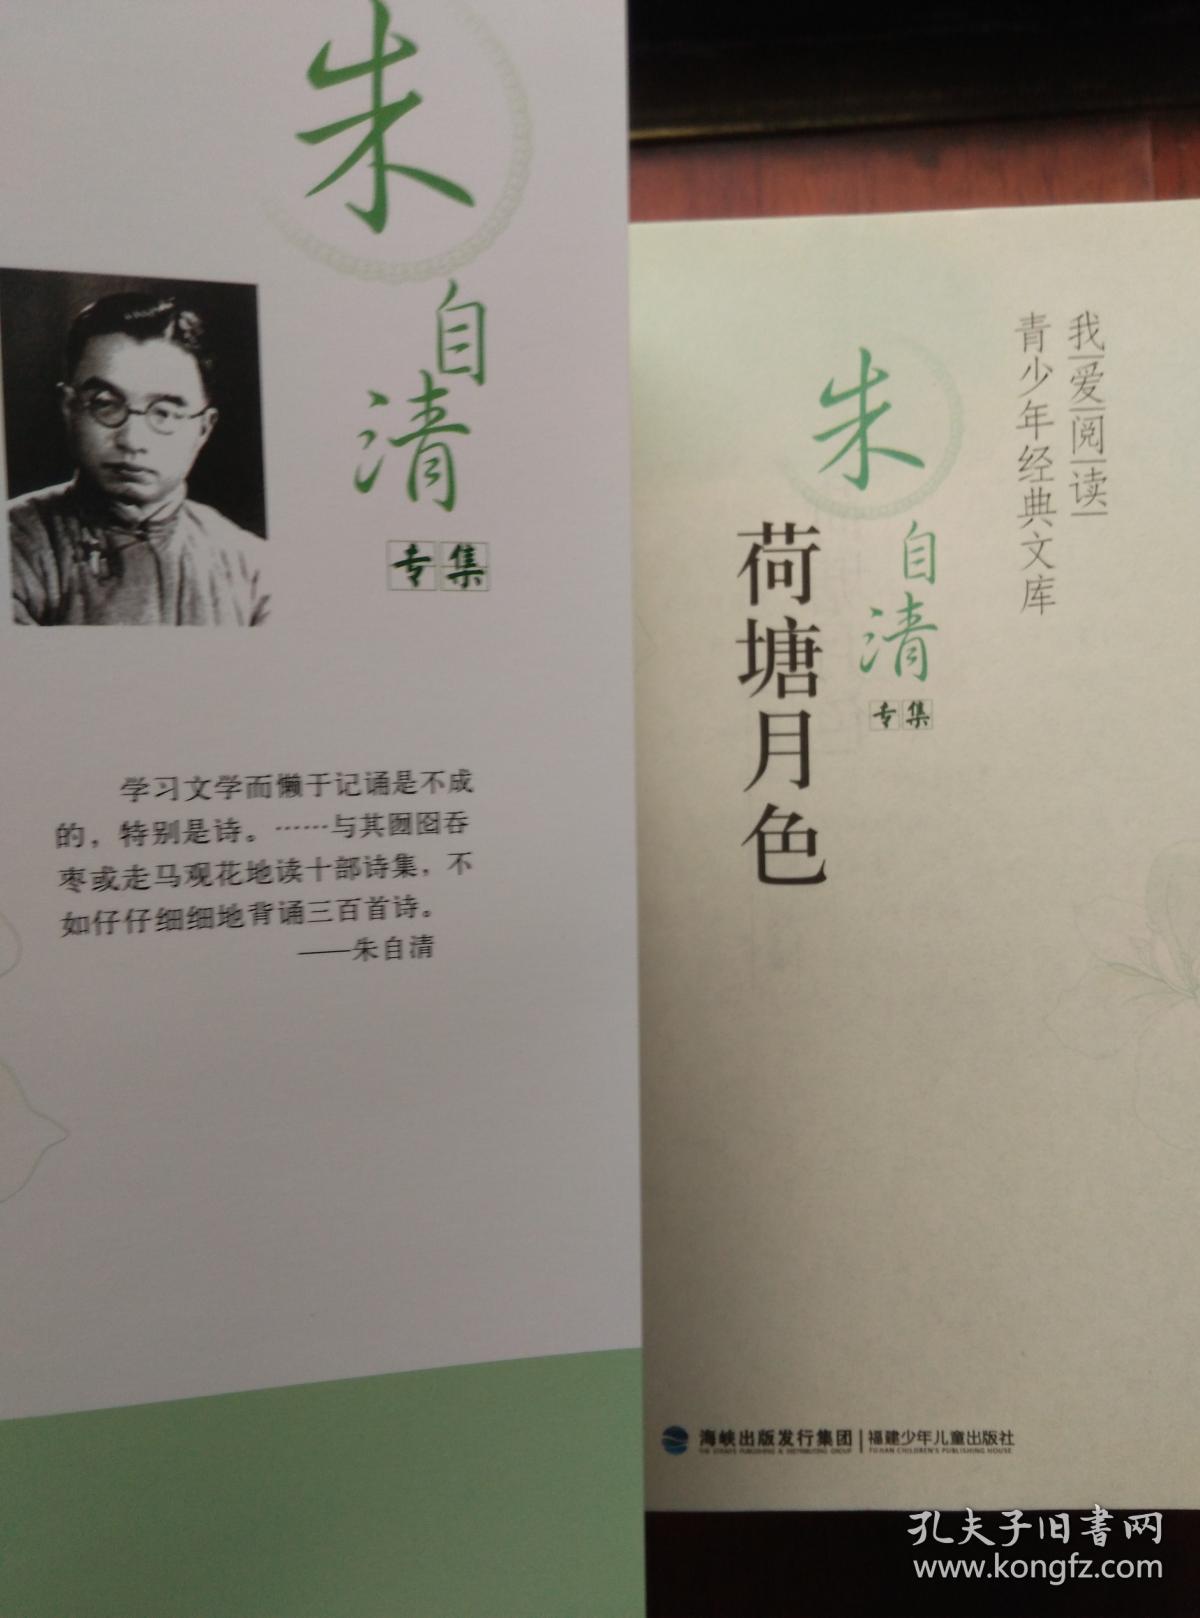 朱
自
清
专集
学习文学而懒于记诵是不成
的，特别是诗。……与其囫囵吞
枣或走马观花地读十部诗集，不
如仔仔细细地背诵三百首诗。
——朱自清
我爱阅读
青少年经典文库
朱
自
清
专集
荷塘月色
海峡出版发行集团
THE STRAITS PUBLISHING & DISTRIBUTING GROUP
福建少年儿童出版社
FUJIAN CHILDREN'S PUBLISHING HOUSE
孔夫子旧书网
www.kongfz.com